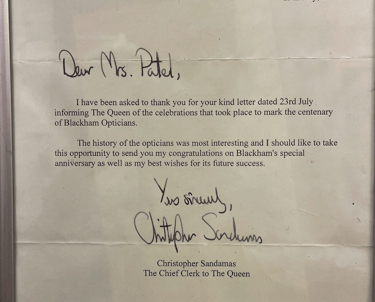 Dear Mrs. Patel,
I have been asked to thank you for your kind letter dated 23rd July
informing The Queen of the celebrations that took place to mark the centenary
of Blackham Opticians.
The history of the opticians was most interesting and I should like to take
this opportunity to send you my congratulations on Blackham's special
anniversary as well as my best wishes for its future success.
Yours sincerely,
Christopher Sandamas
Christopher Sandamas
The Chief Clerk to The Queen